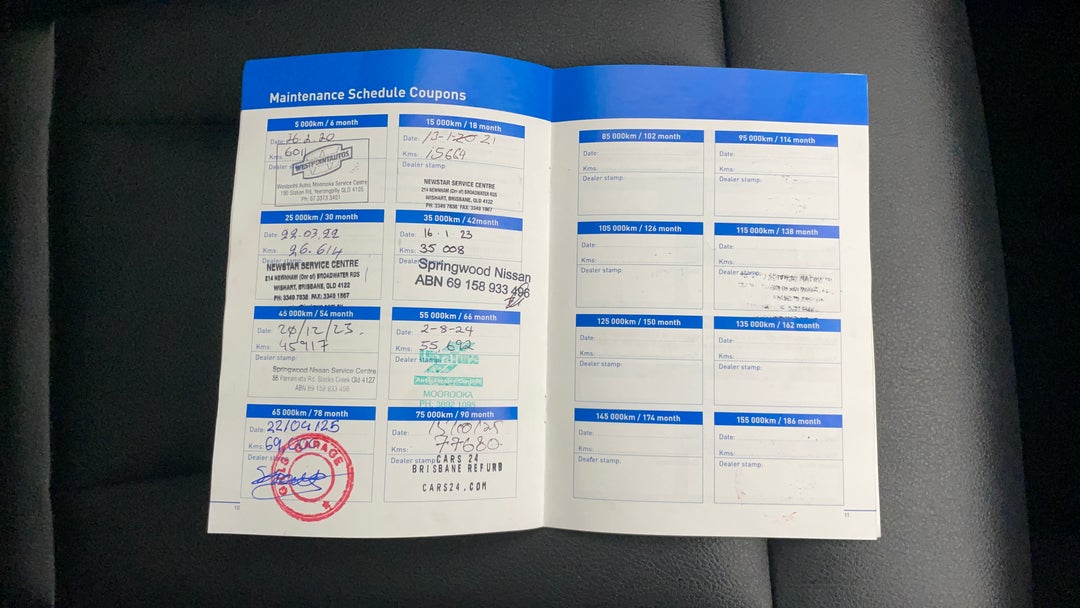 Maintenance Schedule Coupons
5 000km / 6 month
Date: 26.2.20
Kms: 6011
Dealer stamp:
WESTPOINT AUTOS
Westpoint Autos Moorooka Service Centre
Ph: 07 3373 3401
15 000km / 18 month
Date: 13-1-20 21
Kms: 15664
NEWSTAR SERVICE CENTRE
214 NEWNHAM (Cnr of) BROADWATER RDS
WISHART, BRISBANE, QLD 4122
PH: 3349 7838 FAX: 3349 1867
25 000km / 30 month
Date: 22.03.22
Kms: 26.614
Dealer stamp:
NEWSTAR SERVICE CENTRE
214 NEWNHAM (Cnr of) BROADWATER RDS
WISHART, BRISBANE, QLD 4122
PH: 3349 7838 FAX: 3349 1867
35 000km / 42month
Date: 16.1.23
Kms: 35 008
Springwood Nissan
ABN 69 158 933 496
45 000km / 54 month
Date: 20/12/23.
Kms: 45917
Dealer stamp:
Springwood Nissan Service Centre
56 Parramatta Rd, Slacks Creek Qld 4127
ABN 69 158 933 496
55 000km / 66 month
Date: 2-8-24
Kms: 55 692
Dealer stamp:
MOOROOKA
PH: 3892 1095
65 000km / 78 month
Date: 22/04/25
Kms: 69
Dealer stamp:
GARAGE
75 000km / 90 month
Date: 15/10/25
Kms: 77680
Dealer stamp:
CARS 24
BRISBANE REFURB
CARS24.COM
10
85 000km / 102 month
Date:
Kms:
Dealer stamp:
95 000km / 114 month
Date:
Kms:
Dealer stamp:
105 000km / 126 month
Date:
Kms:
Dealer stamp:
115 000km / 138 month
Date:
Kms:
Dealer stamp:
125 000km / 150 month
Date:
Kms:
Dealer stamp:
135 000km / 162 month
Date:
Kms:
Dealer stamp:
145 000km / 174 month
Date:
Kms:
Dealer stamp:
155 000km / 186 month
Date:
Kms:
Dealer stamp:
11